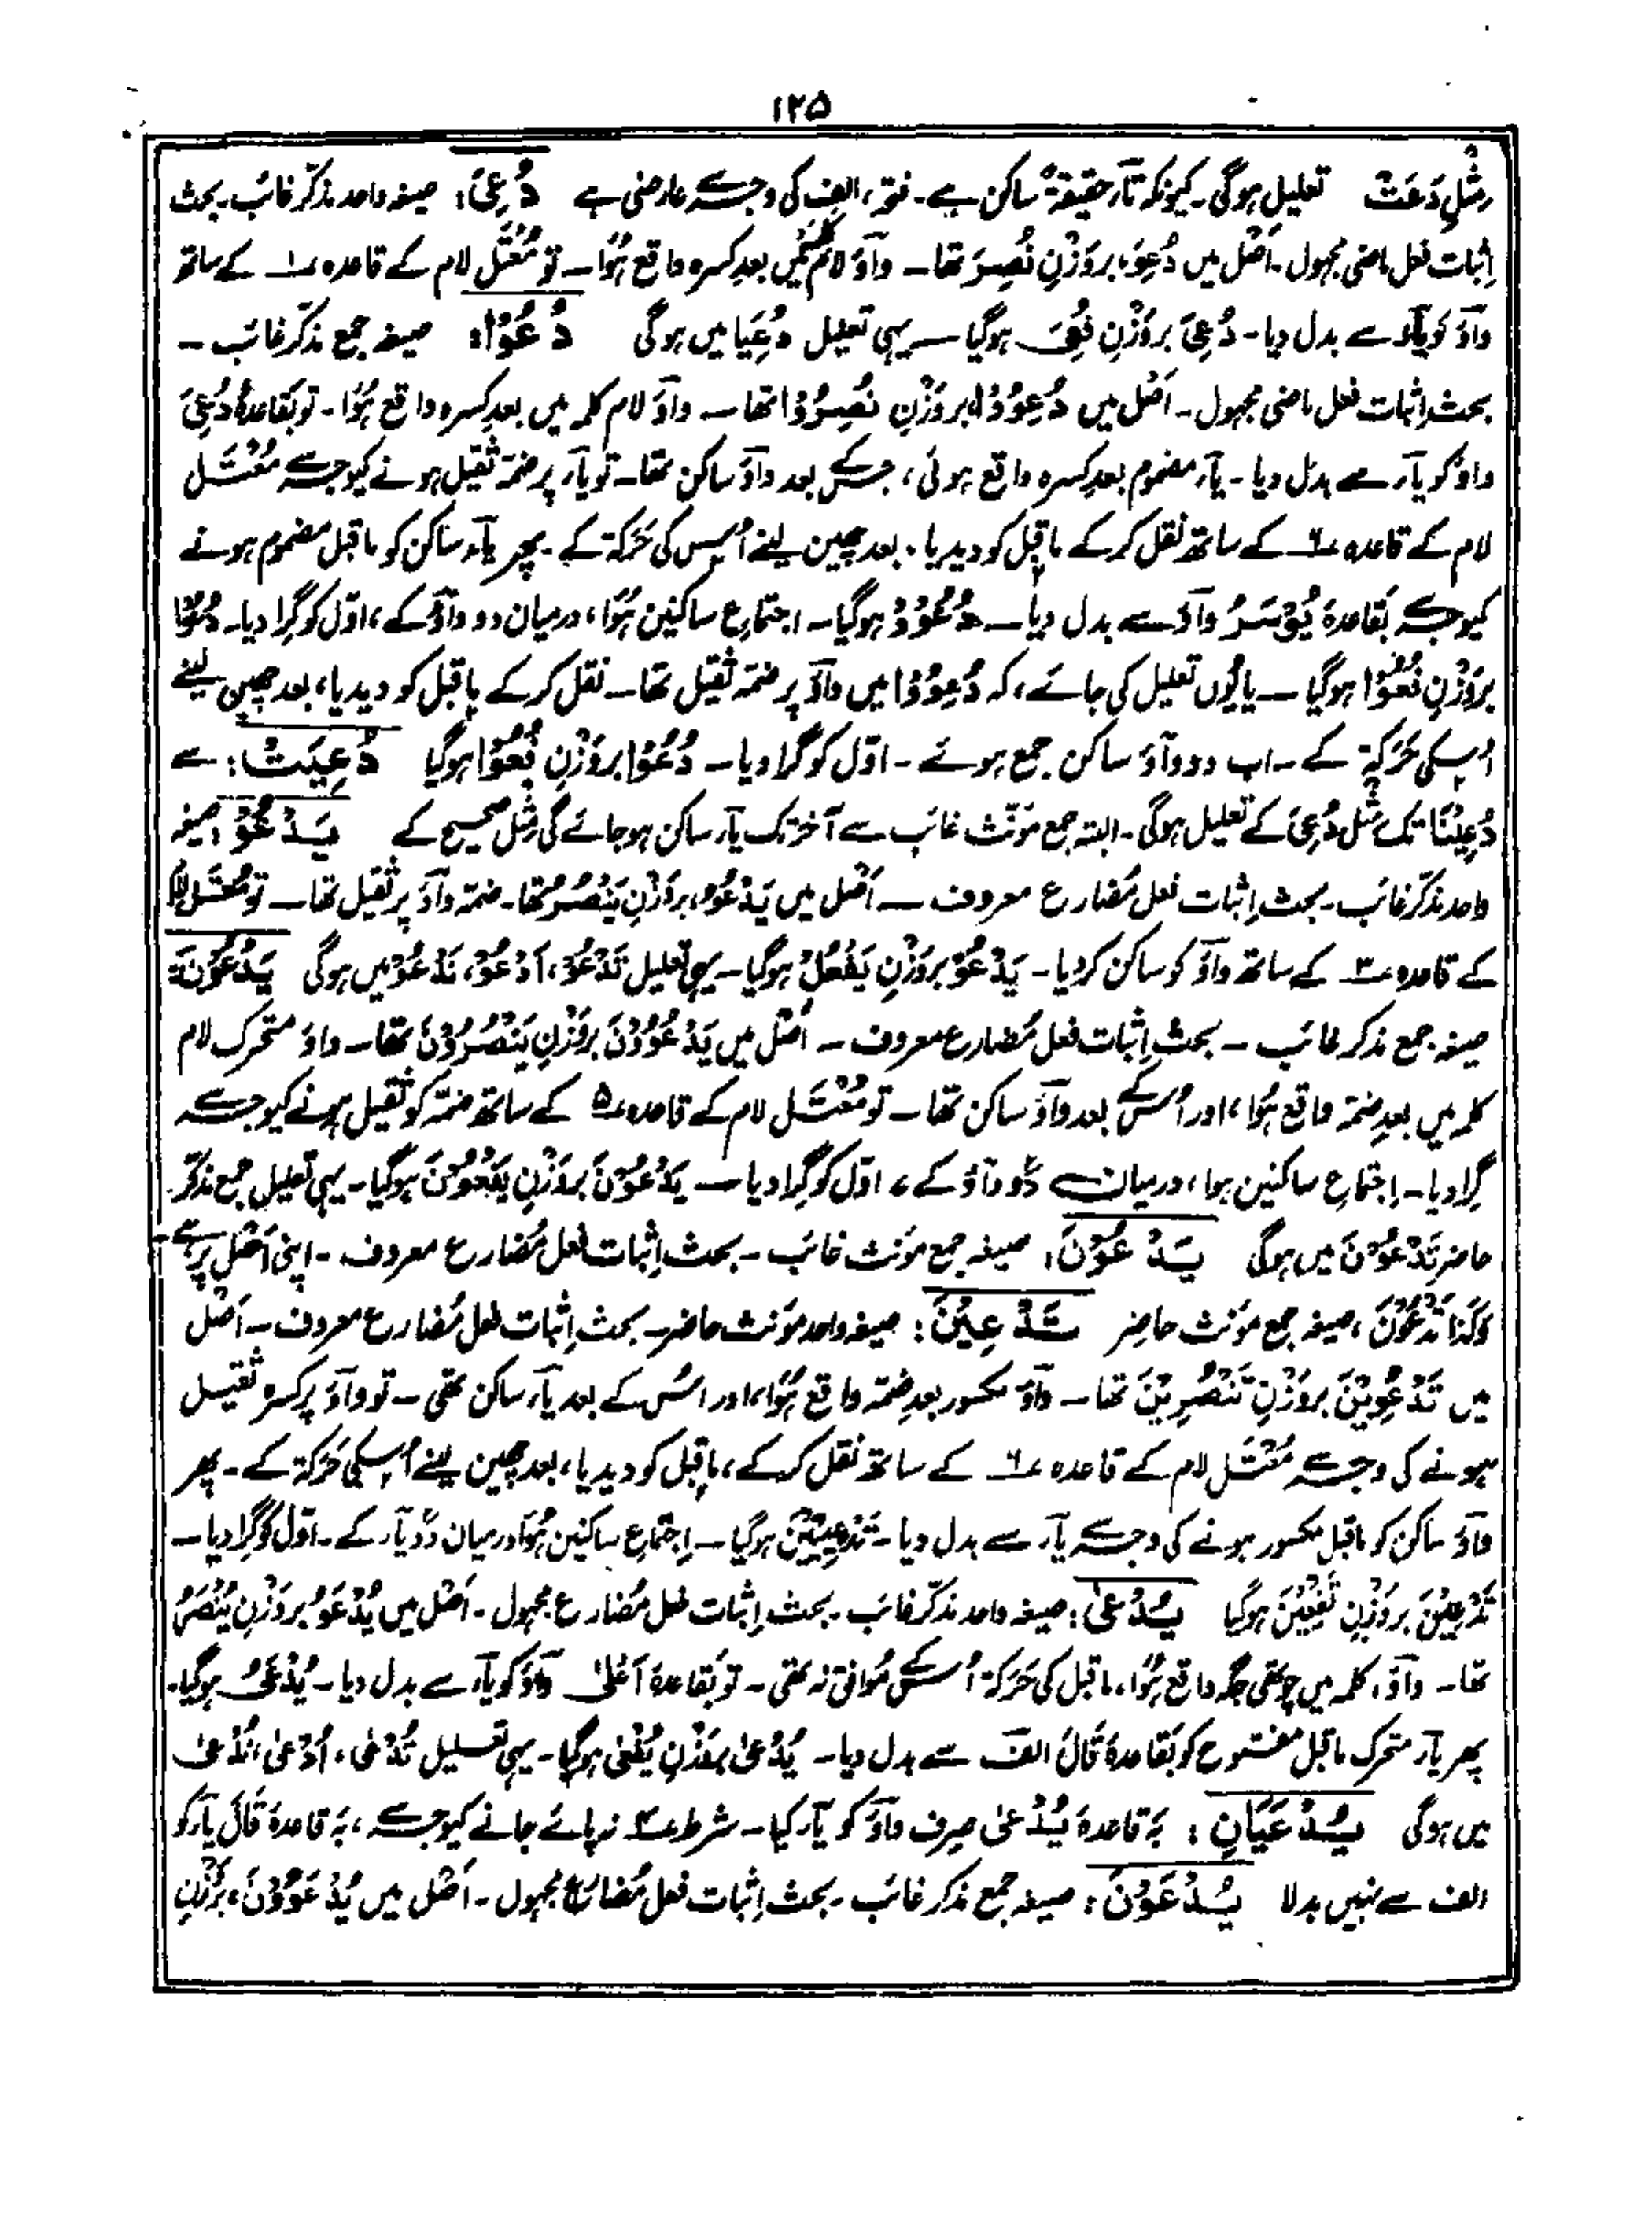 ۱۲۵
مِثْلِ دَعَتْ تعلیل ہوگی۔ کیونکہ تآء حقیقۃً ساکن ہے۔ فتحہ، الِف کی وجہ سے عارضی ہے دُعِیَ: صیغہ واحد مذکّر غائب۔ بحث
اِثبات فعل ماضی مجہول۔ اَصْل میں دُعِوَ، بروَزْنِ نُصِرَ تھا۔ وآوَ لام کلمہ میں بعدِ کسرہ واقع ہُوَا۔ تو مُعْتَل لام کے قاعدہ ۱ کے ساتھ
وآوَ کو یآء سے بدل دیا۔ دُعِیَ بروَزْنِ فُعِیَ ہوگیا۔ یہی تعلیل دُعِیَا میں ہوگی دُعُوْا: صیغہ جمع مذکّر غائب۔
بحث اِثبات فعل ماضی مجہول۔ اَصْل میں دُعِوُوْا، بروَزْنِ نُصِرُوْا تھا۔ وآوَ لام کلمہ میں بعدِ کسرہ واقع ہُوَا۔ تو بَقاعدۂ دُعِیَ
واوَ کو یآء سے بدل دیا۔ یآء مضموم بعدِ کسرہ واقع ہوئی، جس کے بعد وآوَ ساکن تھا۔ تو یآء پر ضمّہ ثقیل ہونے کیوجہ سے مُعْتَل
لام کے قاعدہ ۶ کے ساتھ نقل کر کے ماقبل کو دیدیا۔ بعد چھین لینے اُس کی حَرَکۃ کے۔ پھر یآء ساکن کو ماقبل مضموم ہونے
کیوجہ سے بَقاعدہ یُوْسَرُ وآوَ سے بدل دیا۔ دُعُوْوْ ہوگیا۔ اجتماعِ ساکنین ہُوَا، درمیان دو وآوَ کے، اوّل کو گِرا دیا۔ دُعُوْا
بروَزْنِ فُعُوْا ہوگیا۔ یا یُوں تعلیل کی جائے، کہ دُعِوُوْا میں وآوَ پر ضمّہ ثقیل تھا۔ نقل کر کے ماقبل کو دیدیا، بعد چھین لینے
اُسکی حَرَکۃ کے۔ اب دو وآوَ ساکن جمع ہوئے۔ اوّل کو گرا دیا۔ دُعُوْا بروَزْنِ فُعُوْا ہوگیا دُعِیَتْ: سے
دُعِیْنَا تک مثل دُعِیَ کے تعلیل ہوگی۔ البتہ جمع مؤنّث غائب سے آخر تک یآء ساکن ہوجائے گی مِثل صحیح کے یَدْعُوْ: صیغہ
واحد مذکّر غائب۔ بحث اِثبات فعل مُضارع معروف۔ اَصْل میں یَدْعُوُ، بروَزْنِ یَنْصُرُ تھا۔ ضمّہ وآوَ پر ثقیل تھا۔ تو مُعْتَل لام
کے قاعدہ ۳ کے ساتھ وآوَ کو ساکن کر دیا۔ یَدْعُوْ بروَزْنِ یَفْعُلْ ہوگیا۔ یہی تعلیل تَدْعُوْ، اَدْعُوْ، نَدْعُوْ میں ہوگی یَدْعُوْنَ:
صیغہ جمع مذکر غائب۔ بحث اِثبات فعل مُضارع معروف۔ اَصْل میں یَدْعُوُوْنَ بروَزْنِ یَنْصُرُوْنَ تھا۔ واوَ متحرک لام
کلمہ میں بعدِ ضمّہ واقع ہُوَا، اور اُس کے بعد وآوَ ساکن تھا۔ تو مُعْتَل لام کے قاعدہ ۵ کے ساتھ ضمّہ کو ثقیل ہونے کیوجہ سے
گِرا دیا۔ اِجتماعِ ساکنین ہوا، درمیان دُو وآوَ کے، اوّل کو گِرا دیا۔ یَدْعُوْنَ بروَزْنِ یَفْعُوْنَ ہوگیا۔ یہی تعلیل جمع مذکّر
حاضر تَدْعُوْنَ میں ہوگی یَدْعُوْنَ: صیغہ جمع مؤنث غائب۔ بحث اِثبات فعل مُضارع معروف۔ اپنی اَصْل پر ہے۔
وَکَذَا تَدْعُوْنَ، صیغہ جمع مؤنث حاضِر تَدْعِیْنَ: صیغہ واحد مؤنث حاضر۔ بحث اِثبات فعل مُضارع معروف۔ اَصْل
میں تَدْعُوِیْنَ بروَزْنِ تَنْصُرِیْنَ تھا۔ وآوَ مکسور بعدِ ضمّہ واقع ہُوَا، اور اُس کے بعد یآء ساکن تھی۔ تو وآوَ پر کسرہ ثقیل
ہونے کی وجہ سے مُعْتَل لام کے قاعدہ ۶ کے ساتھ نقل کر کے، ماقبل کو دیدیا، بعد چھین لینے اُسکی حَرَکۃ کے۔ پھر
وآوَ ساکن کو ماقبل مکسور ہونے کی وجہ سے یآء سے بدل دیا۔ تَدْعِیْیْنَ ہوگیا۔ اِجتماعِ ساکنین ہُوَا درمیان دُو یآء کے۔ اوّل کو گِرا دیا۔
تَدْعِیْنَ بروَزْنِ تَفْعِیْنَ ہوگیا یُدْعٰی: صیغہ واحد مذکّر غائب۔ بحث اِثبات فعل مُضارع مجہول۔ اَصْل میں یُدْعَوُ بروَزْنِ یُنْصَرُ
تھا۔ وآوَ، کلمہ میں چوتھی جگہ واقع ہُوَا، ماقبل کی حَرَکۃ اُس کے مُوافق نہ تھی۔ تو بَقاعدۂ اَعْلٰی وآوَ کو یآء سے بدل دیا۔ یُدْعَیُ ہوگیا۔
پھر یآء متحرک ماقبل مفتوح کو بَقاعدۂ قَالَ الف سے بدل دیا۔ یُدْعٰی بروَزْنِ یُفْعٰی ہوگیا۔ یہی تعلیل تُدْعٰی، اُدْعٰی، نُدْعٰی
میں ہوگی یُدْعَیَانِ: بَہ قاعدۂ یُدْعٰی صِرف وآوَ کو یآء کیا۔ شرط ۴ نہ پائے جانے کیوجہ سے، بَہ قاعدۂ قَالَ یآء کو
الف سے نہیں بدلا یُدْعَوْنَ: صیغہ جمع مذکر غائب۔ بحث اِثبات فعل مُضارع مجہول۔ اَصْل میں یُدْعَوُوْنَ، بَروَزْنِ